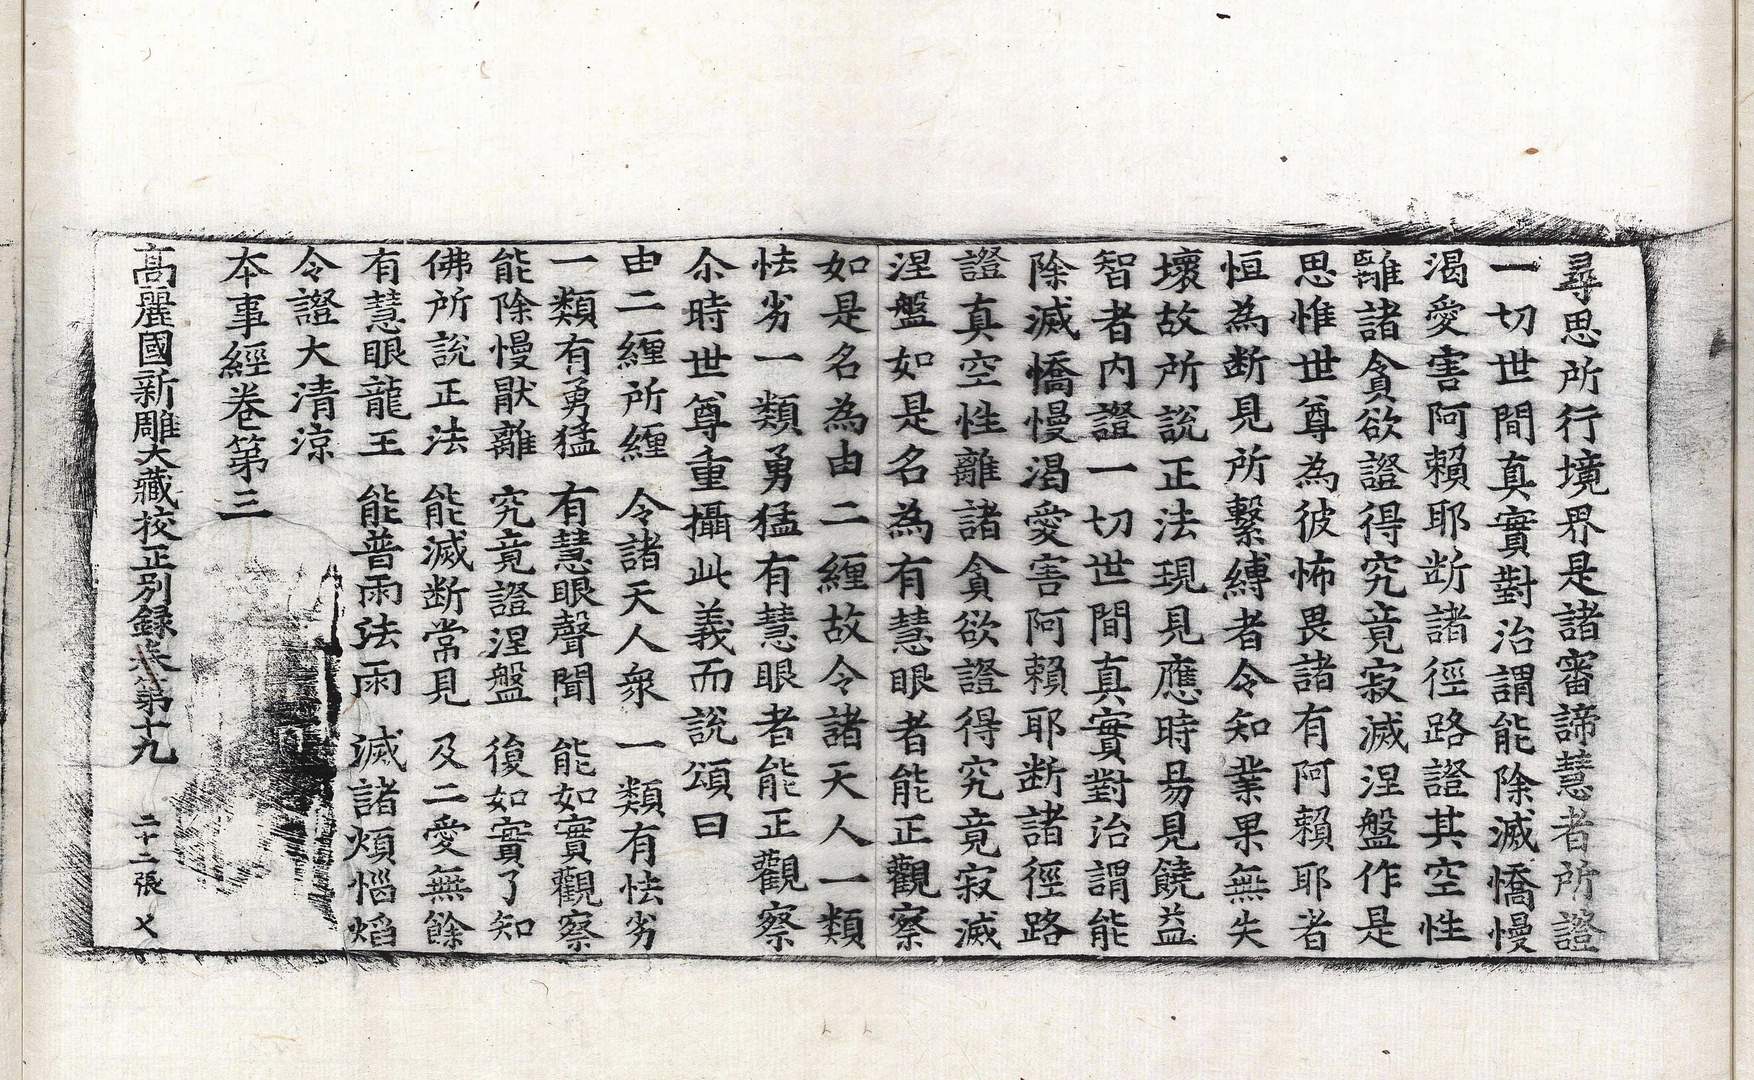 尋思所行境界是諸審諦慧者所證
一切世間真實對治謂能除滅憍慢
渴愛害阿賴耶断諸徑路證其空性
離諸貪欲證得究竟寂滅涅盤作是
思惟世尊為彼怖畏諸有阿賴耶者
恒為断見所繫縛者令知業果無失
壞故所說正法現見應時易見饒益
智者內證一切世間真實對治謂能
除滅憍慢渴愛害阿賴耶断諸徑路
證真空性離諸貪欲證得究竟寂滅
涅盤如是名為有慧眼者能正觀察
如是名為由二纏故令諸天人一類
怯劣一類勇猛有慧眼者能正觀察
尒時世尊重攝此義而說頌曰
由二纏所纏 令諸天人衆 一類有怯劣
一類有勇猛 有慧眼聲聞 能如實觀察
能除慢猒離 究竟證涅盤 復如實了知
佛所說正法 能滅断常見 及二愛無餘
有慧眼龍王 能普雨法雨 滅諸煩惱焰
令證大清涼
本事經卷第三
高麗國新雕大藏校正別録卷第十九 二十二張